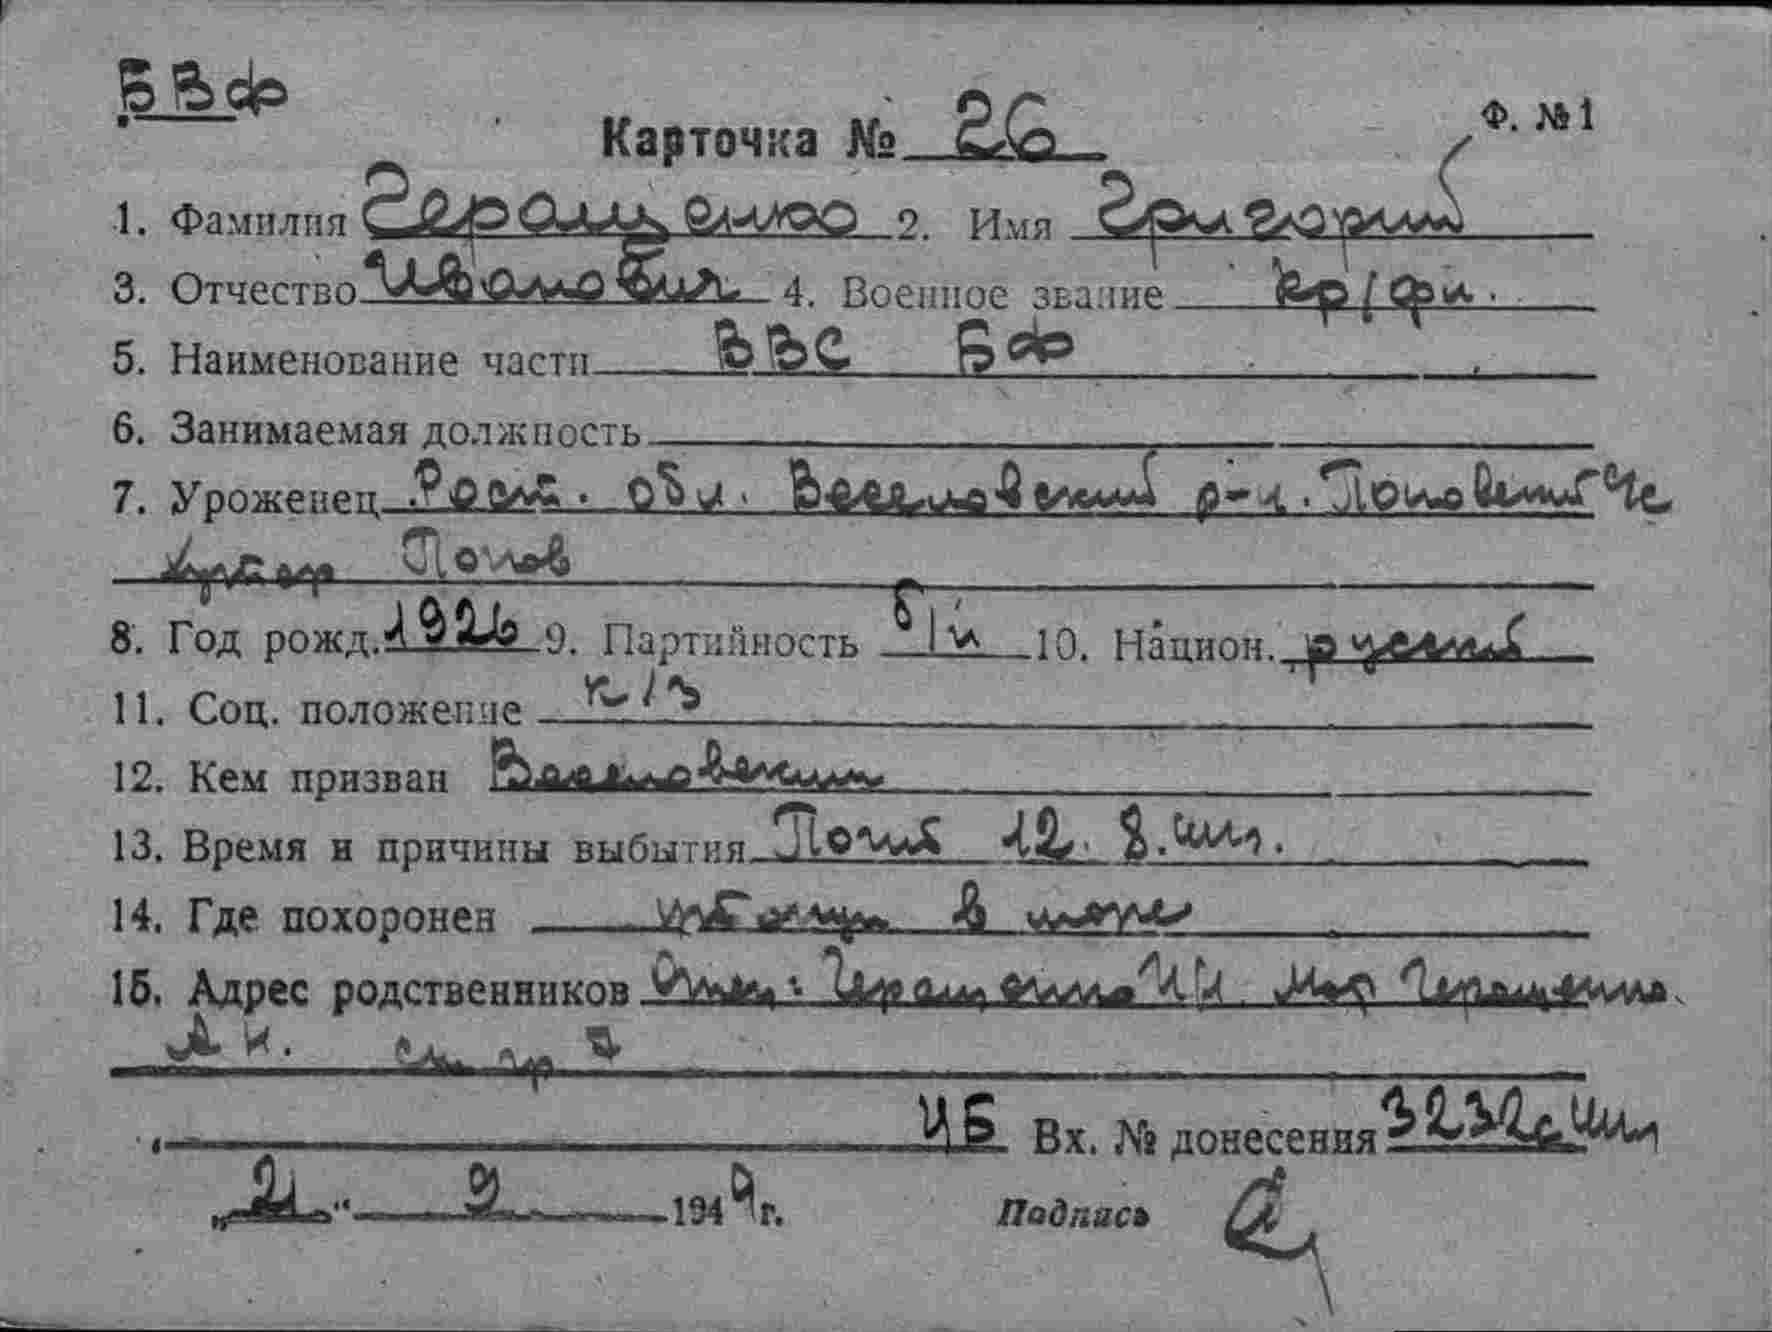 БВФ
Карточка № 26
Ф. №1
1. Фамилия Геращенко 2. Имя Григорий
3. Отчество Иванович 4. Военное звание кр/фл.
5. Наименование части ВВС БФ
6. Занимаемая должность
7. Уроженец Рост. обл. Веселовский р-н. Поповский с/с
хутор Попов
8. Год рожд. 1926 9. Партийность б/п 10. Национ. русский
11. Соц. положение к/з
12. Кем призван Веселовским
13. Время и причины выбытия Погиб 12.8.
14. Где похоронен в море
15. Адрес родственников Отец: Геращенко И И. Мать Геращенко
А Н. см гр 7
ЦБ Вх. № донесения 3232с
„21" 9 1944 г. Подпись